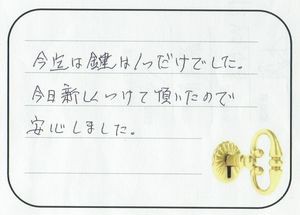 今迄は鍵は1つだけでした。
今日新しくつけて頂いたので
安心しました。